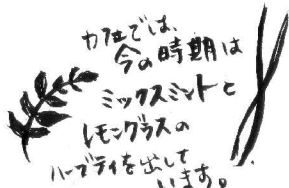 カフェでは、
今の時期は
ミックスミントと
レモングラスの
ハーブティを出して
います。